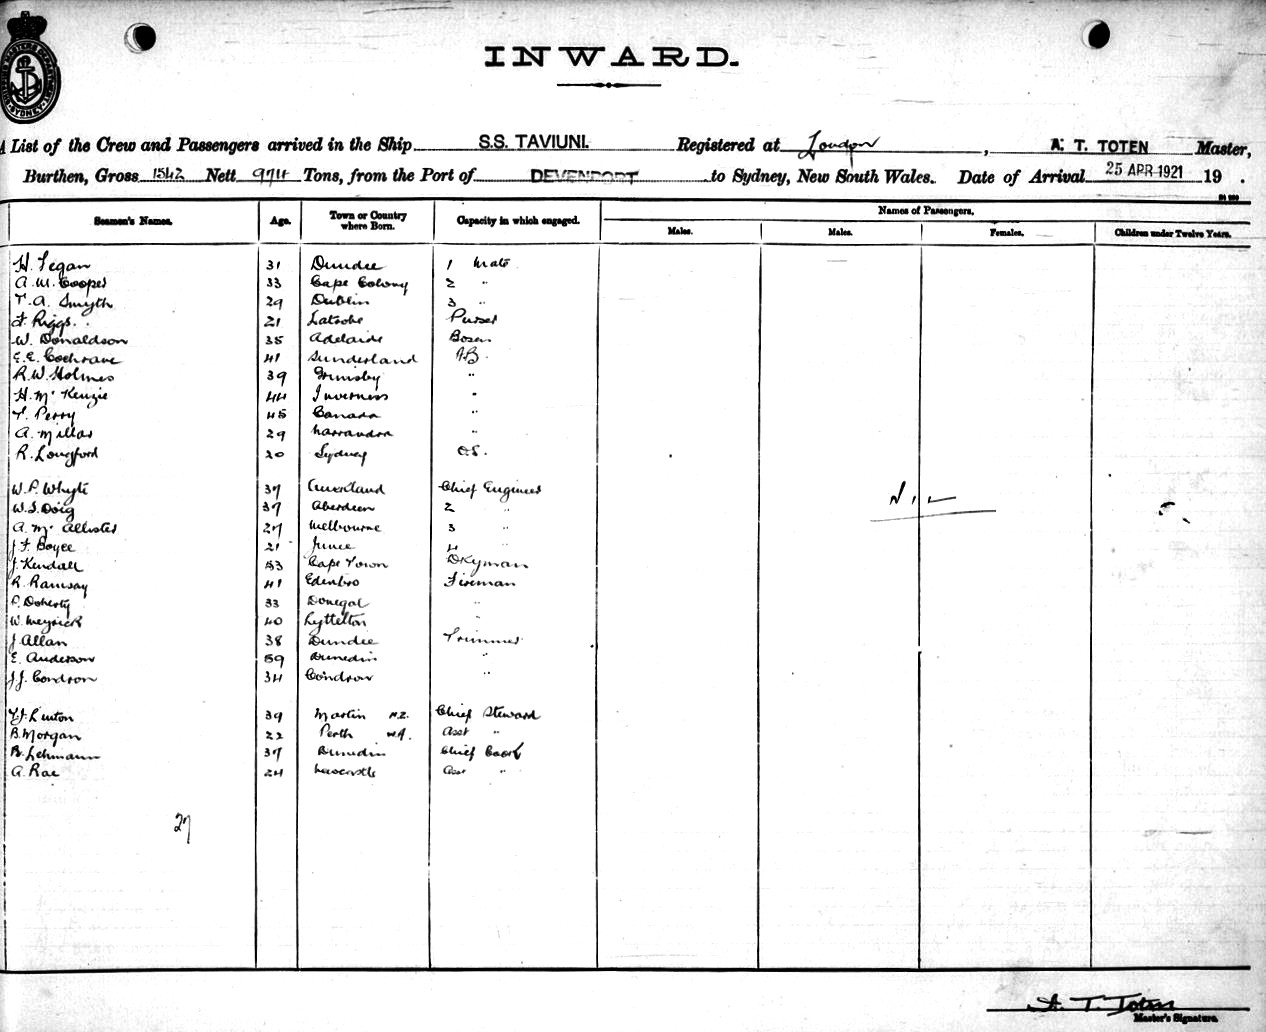 SHIPPING MASTERS DEPARTMENT SYDNEY
INWARD.
A List of the Crew and Passengers arrived in the Ship S.S. TAVIUNI. Registered at London, A. T. TOTEN Master,
Burthen, Gross 1542 Nett 974 Tons, from the Port of DEVENPORT to Sydney, New South Wales. Date of Arrival 25 APR 1921 19 .
Seamen's Names. Age. Town or Country where Born. Capacity in which engaged. Names of Passengers.
Males. Males. Females. Children under Twelve Years.
H. Fegan 31 Dundee 1 Mate
A. M. Cooper 33 Cape Colony 2 "
T. A. Smyth 29 Dublin 3 "
F. Riggs. 21 Latrobe Purser
W. Donaldson 35 Adelaide Bosen
E. E. Cochrane 41 Sunderland AB.
R. W. Holmes 39 Grimsby "
H. Mc Kenzie 44 Inverness "
T. Perry 45 Canada "
A. Millar 29 Narrandra "
R. Longford 20 Sydney O.S.
W. P. Whyte 37 Chief Engineer
W. S. Doig 37 Aberdeen 2 "
A. Mc Allister 27 Melbourne 3 "
J. F. Boyce 21 Junee 4
J. Kendall 53 Cape Town Dkyman
R. Ramsay 41 Edenbro Fireman
P. Doherty 33 Donegal "
W. Meyrick 40 Lyttelton "
J. Allan 38 Dundee Trimmer
E. Anderson 59 Dunedin "
J. J. Condron 34 Condron "
Linton 39 Martin N.Z. Chief Steward
B. Morgan 22 Perth W.A. Asst "
B. Lehmann 37 Dunedin Chief Cook
A. Rae 24 Newcastle Asst "
Nil
27
A. T. Toten
Master's Signature.